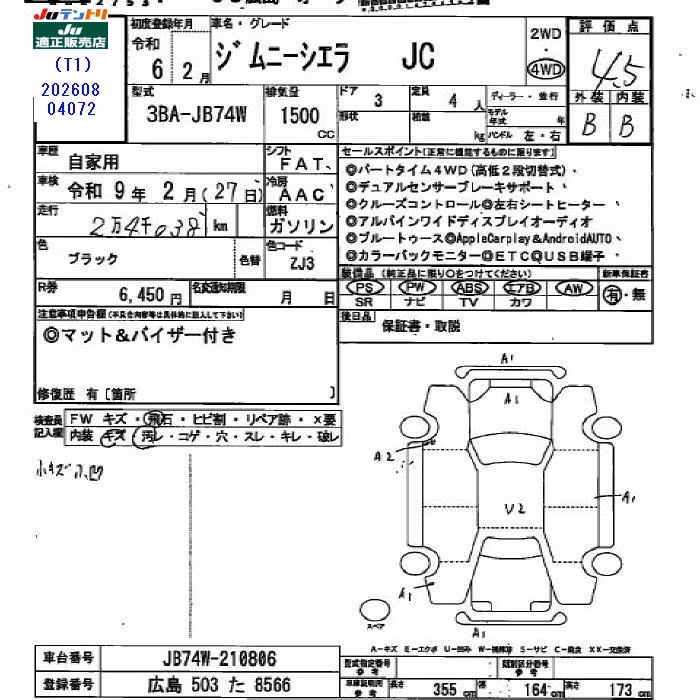 JUテントリ
JU
適正販売店
(T1)
202608
04072
初度登録年月
令和
6年2月
車名・グレード
ジムニーシエラ JC
2WD
・
4WD
評価点
4.5
外装 内装
B B
型式
3BA-JB74W
排気量
1500
CC
ドア
3
定員
4人
形状
積載
kg
ディーラー・並行
モデル年式 年
ハンドル 左・右
車歴
自家用
シフト
FAT
車検
令和 9年 2月(27日)
冷房
AAC
走行
2万4千038 km
燃料
ガソリン
色
ブラック
色替
色コード
ZJ3
R券
6,450円
名変通知期限
月 日
セールスポイント[正常に機能するものに限ります]
◎パートタイム4WD(高低2段切替式)、
◎デュアルセンサーブレーキサポート、
◎クルーズコントロール◎左右シートヒーター
◎アルパインワイドディスプレイオーディオ
◎ブルートゥース◎AppleCarplay&AndroidAUTO、
◎カラーバックモニター◎ETC◎USB端子
装備品(純正品に限り○をつけてください)
PS PW ABS エアB AW
SR ナビ TV カワ
新車保証書
有・無
後日品
保証書・取説
注意事項申告欄(不具合内容等は具体的に記入して下さい)
◎マット&バイザー付き
修復歴 有〔箇所 〕
検査員記入欄
FW キズ・飛石・ヒビ割・リペア跡・×要
内装 キズ・汚レ・コゲ・穴・スレ・キレ・破レ
小キズ小凹
A1
A1
A2
U2
A1
A1
A1
スペア
A-キズ E-エクボ U-凹み W-補修跡 S-サビ C-腐食 XX-交換済
車台番号
JB74W-210806
登録番号
広島 503 た 8566
型式指定番号 参考
類別区分番号 参考
車庫証明用 参考
長さ 355 cm
幅 164 cm
高さ 173 cm